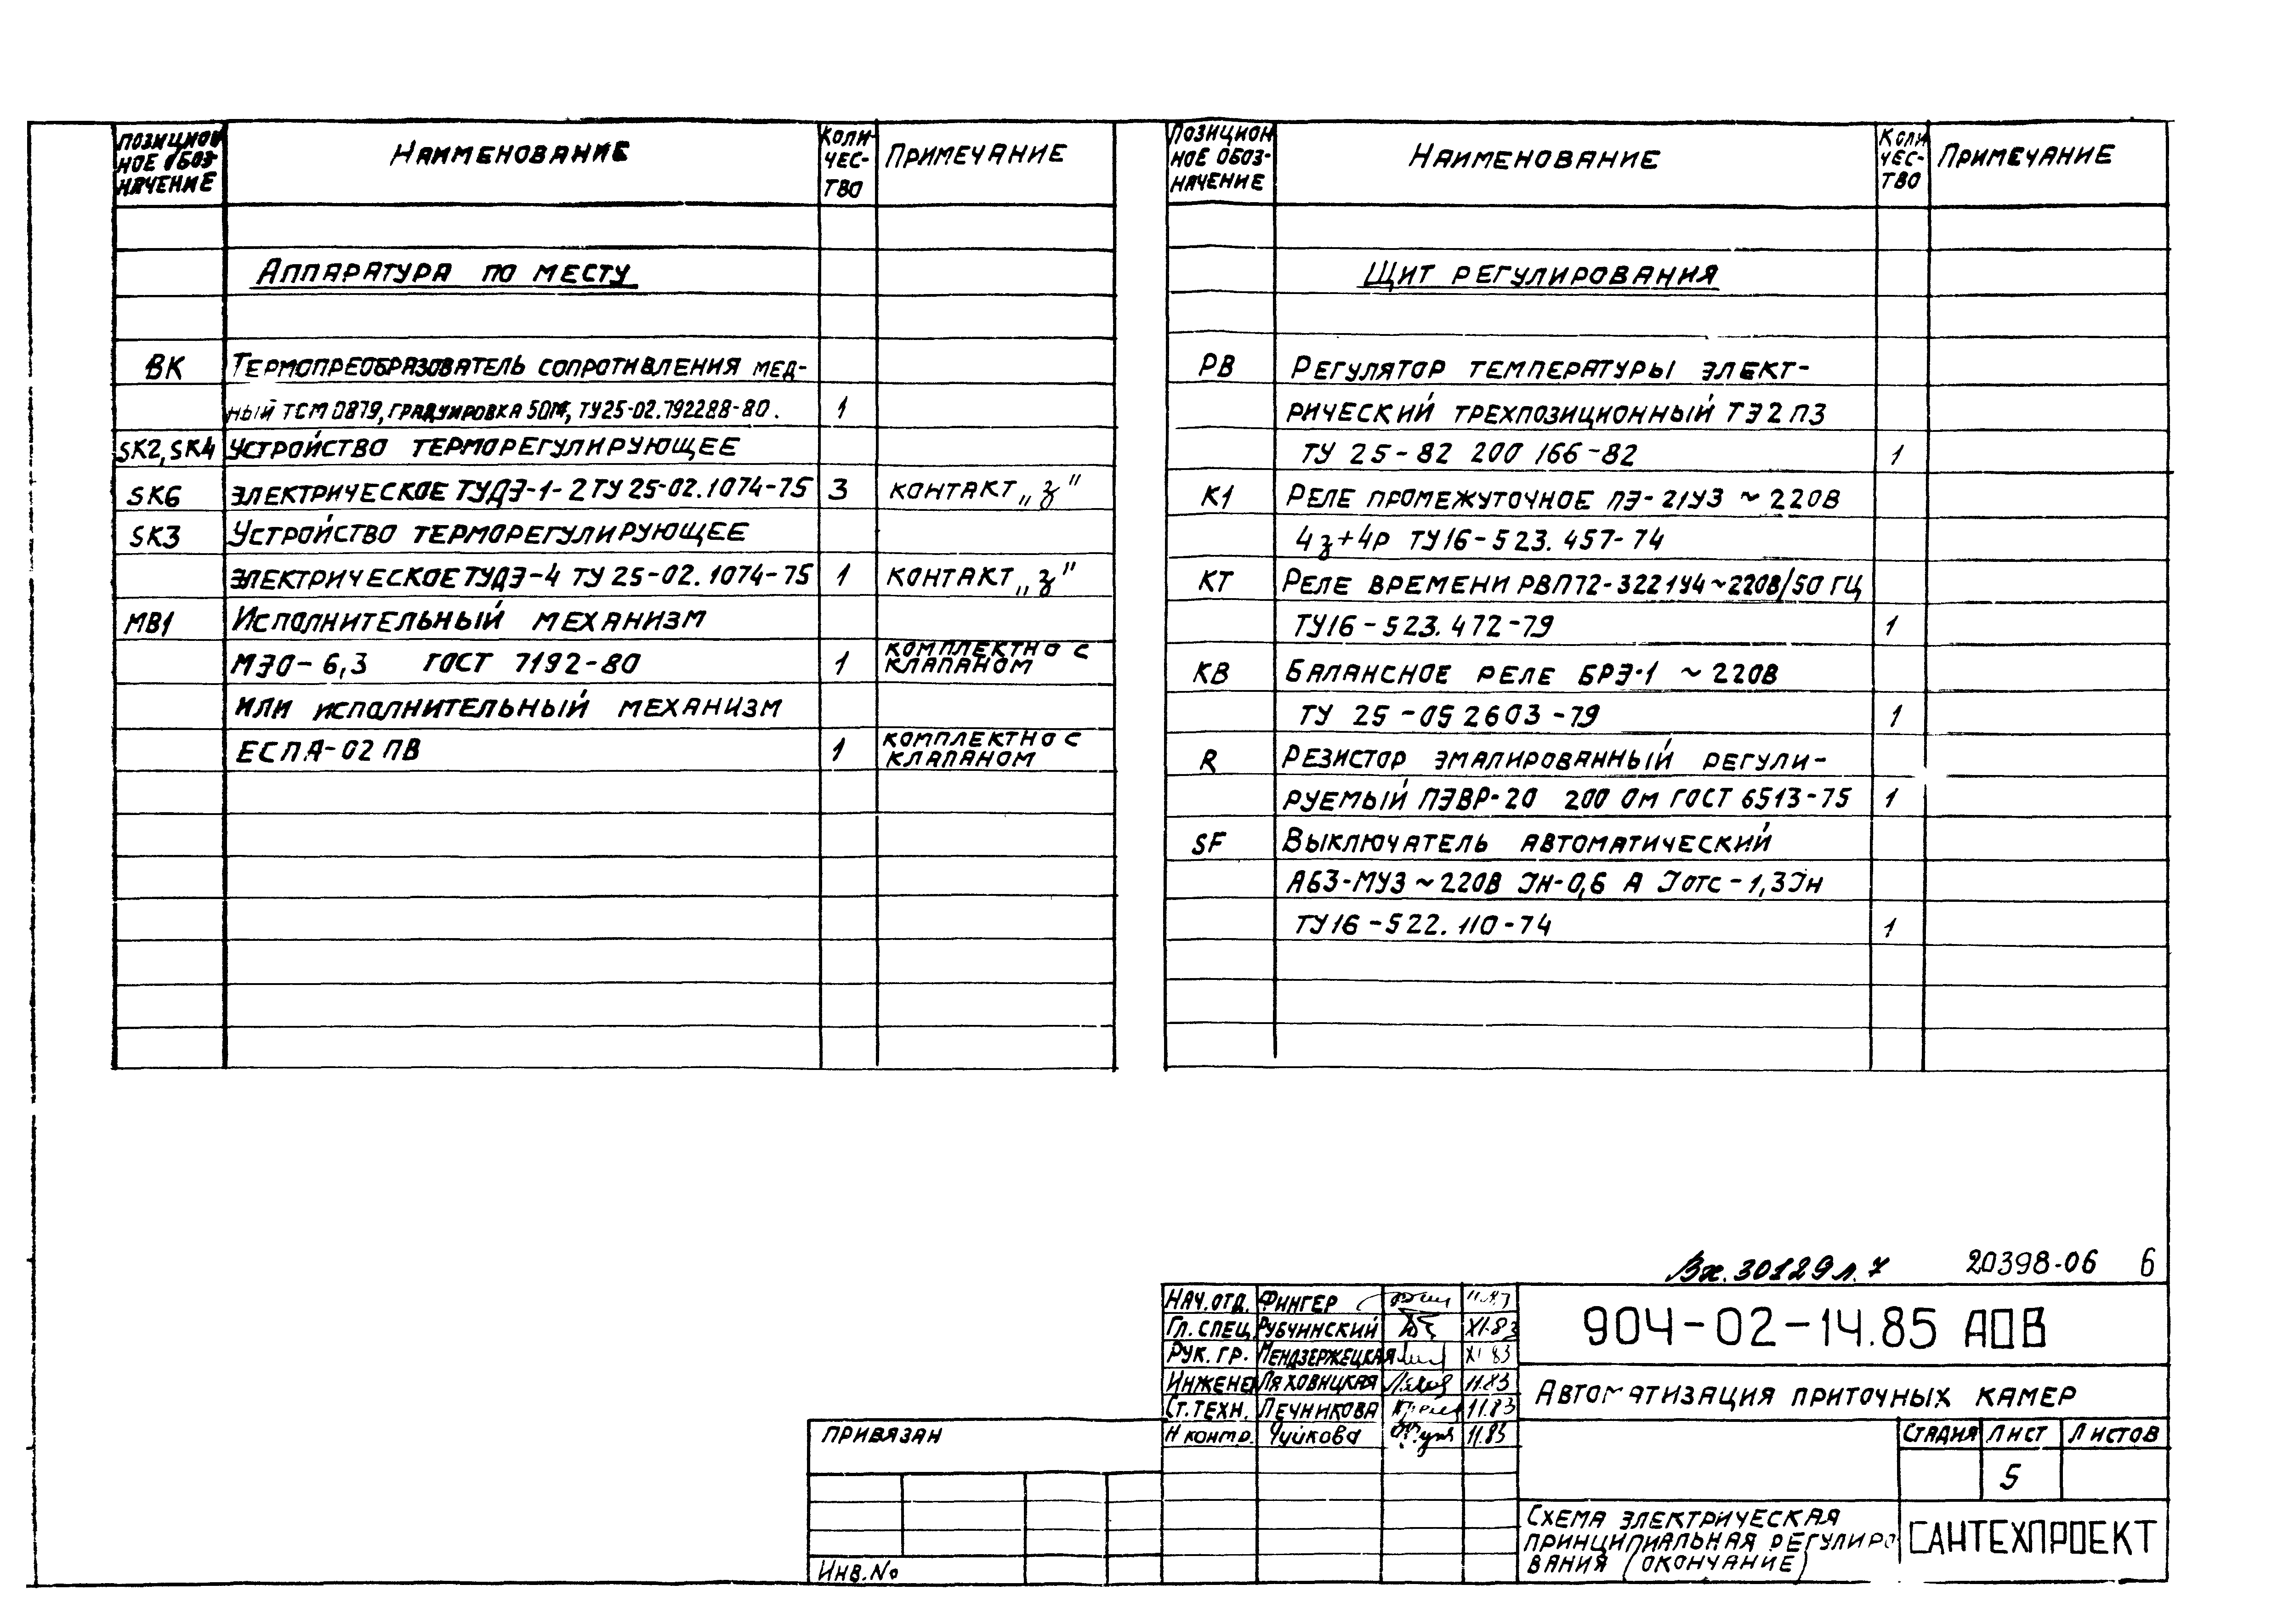 ПОЗИЦИОН
НОЕ ОБОЗ-
НАЧЕНИЕ
НАИМЕНОВАНИЕ
КОЛИ-
ЧЕС-
ТВО
ПРИМЕЧАНИЕ
АППАРАТУРА ПО МЕСТУ
ВК ТЕРМОПРЕОБРАЗОВАТЕЛЬ СОПРОТИВЛЕНИЯ МЕД-
НЫЙ ТСМ 0879, ГРАДУИРОВКА 50М, ТУ25-02.792288-80. 1
SK2, SK4 УСТРОЙСТВО ТЕРМОРЕГУЛИРУЮЩЕЕ
SK6 ЭЛЕКТРИЧЕСКОЕ ТУДЭ-1-2 ТУ 25-02.1074-75 3 КОНТАКТ „З"
SK3 УСТРОЙСТВО ТЕРМОРЕГУЛИРУЮЩЕЕ
ЭЛЕКТРИЧЕСКОЕ ТУДЭ-4 ТУ 25-02.1074-75 1 КОНТАКТ „З"
МВ1 ИСПОЛНИТЕЛЬНЫЙ МЕХАНИЗМ
МЭО-6,3 ГОСТ 7192-80 1 КОМПЛЕКТНО С
КЛАПАНОМ
ИЛИ ИСПОЛНИТЕЛЬНЫЙ МЕХАНИЗМ
ЕСПА-02 ПВ 1 КОМПЛЕКТНО С
КЛАПАНОМ
ПОЗИЦИОН
НОЕ ОБОЗ-
НАЧЕНИЕ
НАИМЕНОВАНИЕ
КОЛИ
ЧЕС-
ТВО
ПРИМЕЧАНИЕ
ЩИТ РЕГУЛИРОВАНИЯ
РВ РЕГУЛЯТОР ТЕМПЕРАТУРЫ ЭЛЕКТ-
РИЧЕСКИЙ ТРЕХПОЗИЦИОННЫЙ ТЭ2П3
ТУ 25-82 200 166-82 1
К1 РЕЛЕ ПРОМЕЖУТОЧНОЕ ПЭ-21У3 ~220В
4З+4Р ТУ16-523.457-74
КТ РЕЛЕ ВРЕМЕНИ РВП72-3221У4~220В/50 ГЦ
ТУ16-523.472-79 1
КВ БАЛАНСНОЕ РЕЛЕ БРЭ-1 ~220В
ТУ 25-05 2603-79 1
R РЕЗИСТОР ЭМАЛИРОВАННЫЙ РЕГУЛИ-
РУЕМЫЙ ПЭВР-20 200 ОМ ГОСТ 6513-75 1
SF ВЫКЛЮЧАТЕЛЬ АВТОМАТИЧЕСКИЙ
АБ3-МУ3 ~220В Iн-0,6 А Iотс-1,3Iн
ТУ16-522.110-74 1
Вх. 30129 л. 7 20398-06 6
НАЧ.ОТД. ФИНГЕР
ГЛ. СПЕЦ. РУБЧИНСКИЙ XI.83
РУК. ГР. МЕНДЗЕРЖЕЦКАЯ XI 83
ИНЖЕНЕ ЛЯХОВИЦКАЯ 11.83
СТ.ТЕХН. ПЕЧНИКОВА 11.83
Н КОНТР. ЧУЙКОВА 11.83
904-02-14.85 АОВ
АВТОМАТИЗАЦИЯ ПРИТОЧНЫХ КАМЕР
СТАДИЯ ЛИСТ ЛИСТОВ
5
СХЕМА ЭЛЕКТРИЧЕСКАЯ
ПРИНЦИПИАЛЬНАЯ РЕГУЛИРО
ВАНИЯ (ОКОНЧАНИЕ)
САНТЕХПРОЕКТ
ПРИВЯЗАН
ИНВ.No